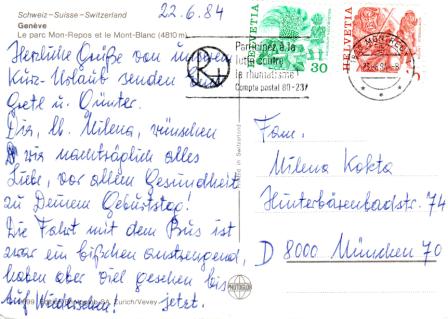 Schweiz-Suisse-Switzerland
Genève
Le parc Mon-Repos et le Mont-Blanc (4810 m)
22.6.84
Herzliche Grüße von unserem
Kurz-Urlaub senden
Grete u. Günter.
Dir, lb. Milena, wünschen
wir nachträglich alles
Liebe, vor allem Gesundheit
zu Deinem Geburtstag!
Die Fahrt mit dem Bus ist
zwar ein bißchen anstrengend,
haben aber viel gesehen bis
jetzt.
Auf Wiedersehen!
HELVETIA
30
HELVETIA
Participez à la
lutte contre
le rhumatisme!
Compte postal 80-237
Printed in Switzerland
Fam.
Milena Kokta
Hinterbärenbadstr. 74
D 8000 München 70
PHOTOGLOB
Zürich/Vevey